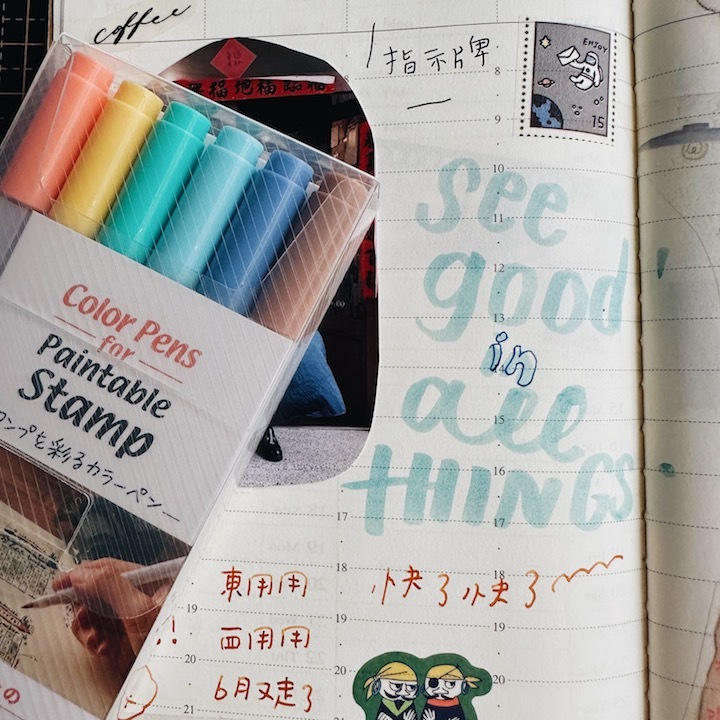 coffee
指示牌
ENJOY
15
福地福臨福
Color Pens
for
Paintable
Stamp
ンプを彩るカラーペン
see
good
in
all
THINGS
東用用
快了快了
西用用
6月又走了
8
9
10
11
12
13
14
15
16
17
18
19
20
21
17
18
19
20